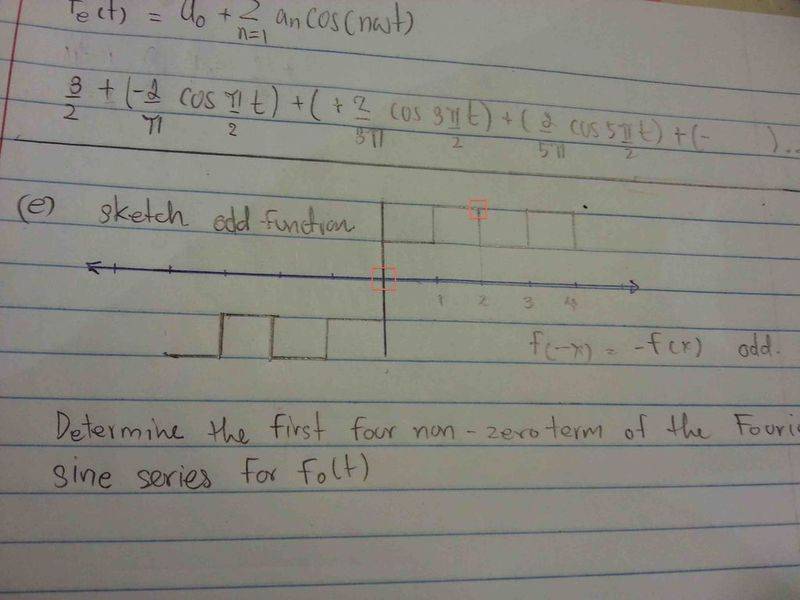 Fe(t) = a₀ + Σ n=1 an cos(nωt)
3/2 + (-2/π cos π/2 t) + ( + 2/3π cos 3π/2 t) + ( 2/5π cos 5π/2 t) + (- )...
(e) sketch odd function
1 2 3 4
f(-x) = -f(x) odd.
Determine the first four non-zero term of the Fourie
sine series for Fo(t)